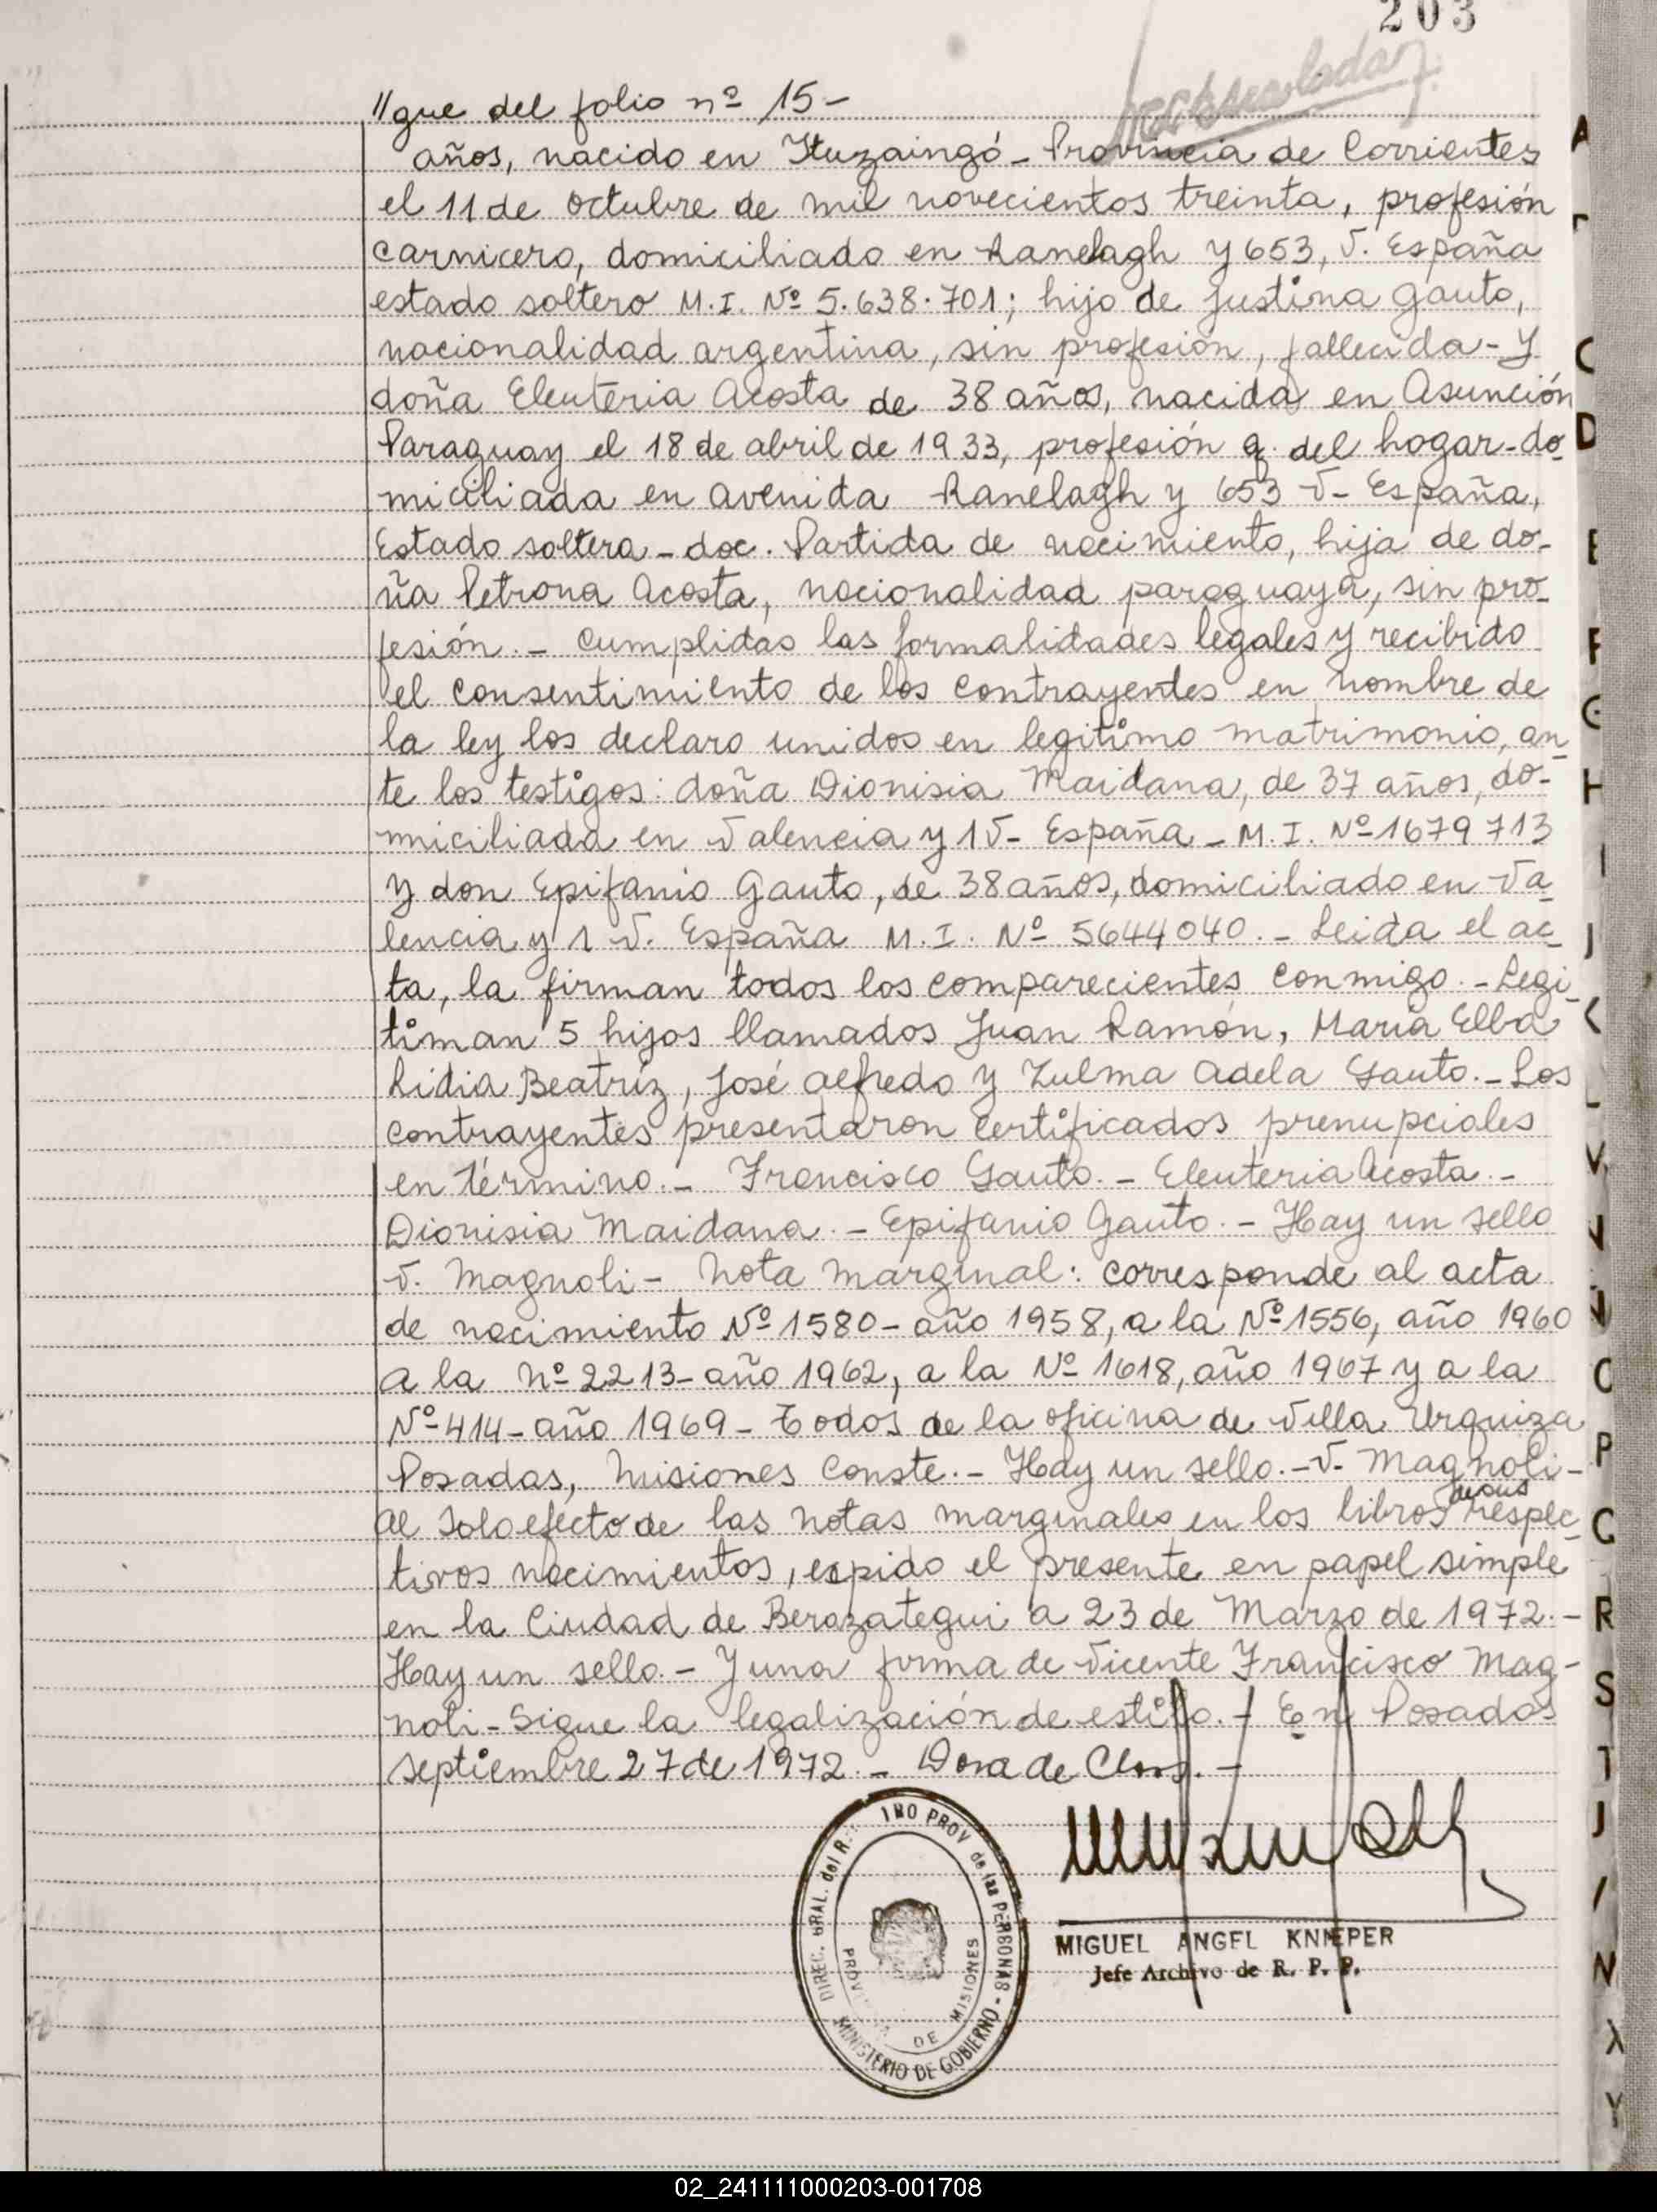 203
//gue del folio nº 15-
años, nacido en Ituzaingó - Provincia de Corrientes
el 11 de octubre de mil novecientos treinta, profesión
carnicero, domiciliado en Ranelagh y 653, V. España
estado soltero M.I. Nº 5.638.701; hijo de Justina Gauto,
nacionalidad argentina, sin profesión, fallecida - y
doña Eleuteria Acosta de 38 años, nacida en Asunción
Paraguay el 18 de abril de 1933, profesión q. del hogar - do-
miciliada en avenida Ranelagh y 653 V- España,
Estado soltera - doc. Partida de nacimiento, hija de do-
ña Petrona Acosta, nacionalidad paraguaya, sin pro-
fesión. - Cumplidas las formalidades legales y recibido
el consentimiento de los contrayentes en nombre de
la ley los declaro unidos en legítimo matrimonio, an-
te los testigos: doña Dionisia Maidana, de 37 años, do-
miciliada en Valencia y 1 V- España - M.I. Nº 1679713
y don Epifanio Gauto, de 38 años, domiciliado en Va-
lencia y 1 V. España M.I. Nº 5644040. - Leida el ac-
ta, la firman todos los comparecientes conmigo. - Legi-
timan 5 hijos llamados Juan Ramón, María Elba
Lidia Beatríz, José Alfredo y Zulma Adela Gauto. - Los
contrayentes presentaron certificados prenupciales
en término. - Francisco Gauto. - Eleuteria Acosta. -
Dionisia Maidana. - Epifanio Gauto. - Hay un sello
V. Magnoli - Nota marginal: corresponde al acta
de nacimiento Nº 1580 - año 1958, a la Nº 1556, año 1960
a la nº 2213 - año 1962, a la Nº 1618, año 1967 y a la
Nº 414 - año 1969 - Todos de la oficina de Villa Urquiza
Posadas, Misiones Conste. - Hay un sello. - V. Magnoli -
Al solo efecto de las notas marginales en los libros de sus respec-
tivos nacimientos, expido el presente en papel simple
en la Ciudad de Berazategui a 23 de Marzo de 1972. -
Hay un sello. - Y una firma de Vicente Francisco Mag-
noli - Sigue la legalización de estilo. - En Posadas
septiembre 27 de 1972. - Dora de -
DIREC. GRAL. del R. PROV. de las PERSONAS - MINISTERIO DE GOBIERNO
PROVINCIA DE MISIONES
MIGUEL ANGEL KNIEPER
Jefe Archivo de R. P. P.
02_241111000203-001708